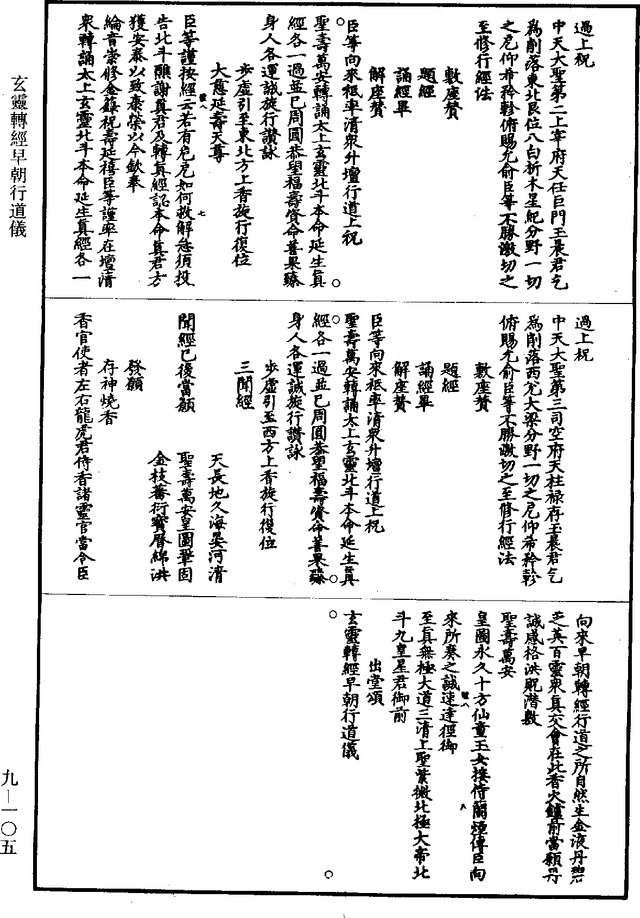 過上祝
中天大聖第二上宰府天任巨門玉晨君乞
爲削落東北艮位八白析木星紀分野一切
之厄仰希矜軫俯賜允俞臣等不勝激切之
至修行經法
敷座贊
題經
誦經畢
解座贊
臣等向來祗率清衆升壇行道上祝
聖壽萬安轉誦太上玄靈北斗本命延生真
經各一過並已周圓恭望福壽資命善果臻
身人各運誠旋行讚詠
步虛引至東北方上香旋行復位
大慈延壽天尊
臣等謹按經云若有危厄如何救解急須投
告北斗醮謝真君及轉真經認本命真君方
獲安泰以致康榮以今欽奉
綸音崇修金籙祝壽延禧臣等謹率在壇清
衆轉誦太上玄靈北斗本命延生真經各一
過上祝
中天大聖第三司空府天柱祿存玉晨君乞
爲削落西兌大梁分野一切之厄仰希矜軫
俯賜允俞臣等不勝激切之至修行經法
敷座贊
題經
誦經畢
解座贊
臣等向來祗率清衆升壇行道上祝
聖壽萬安轉誦太上玄靈北斗本命延生真
經各一過並已周圓恭望福壽資命善果臻
身人各運誠旋行讚詠
步虛引至西方上香旋行復位
三聞經
天長地久海晏河清
聞經已後當願
聖壽萬安皇圖鞏固
金枝蕃衍寶曆綿洪
發願
存神燒香
香官使者左右龍虎君侍香諸靈官當令臣
向來早朝轉經行道之所自然生金液丹碧
芝英百靈衆真交會在此香火鑪前當願丹
誠感格洪貺潛敷
聖壽萬安
皇圖永久十方仙童玉女接侍蘭煙傳臣向
來所奏之誠速達徑御
至真無極大道三清上聖紫微北極大帝北
斗九皇星君御前
出堂頌
玄靈轉經早朝行道儀
玄靈轉經早朝行道儀
九—一〇五